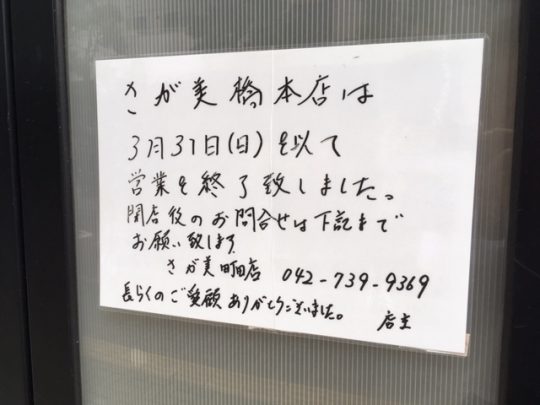 さが美橋本店は
3月31日(日)を以て
営業を終了致しました。
閉店後のお問合せは下記まで
お願い致します
さが美町田店 042-739-9369
長らくのご愛顧ありがとうございました。 店主